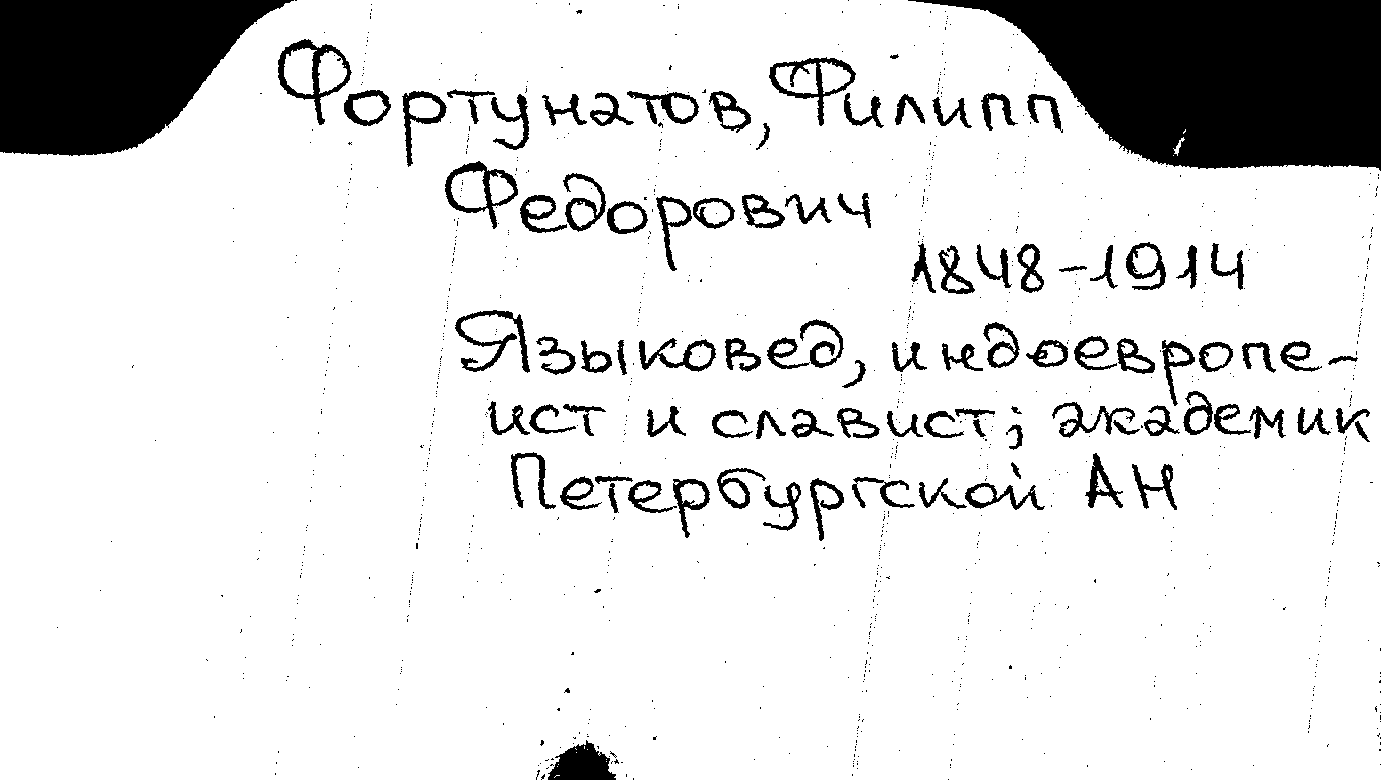 Фортунатов, Филипп
Федорович
1848-1914
Языковед, индоевропе-
ист и славист; академик
Петербургской АН